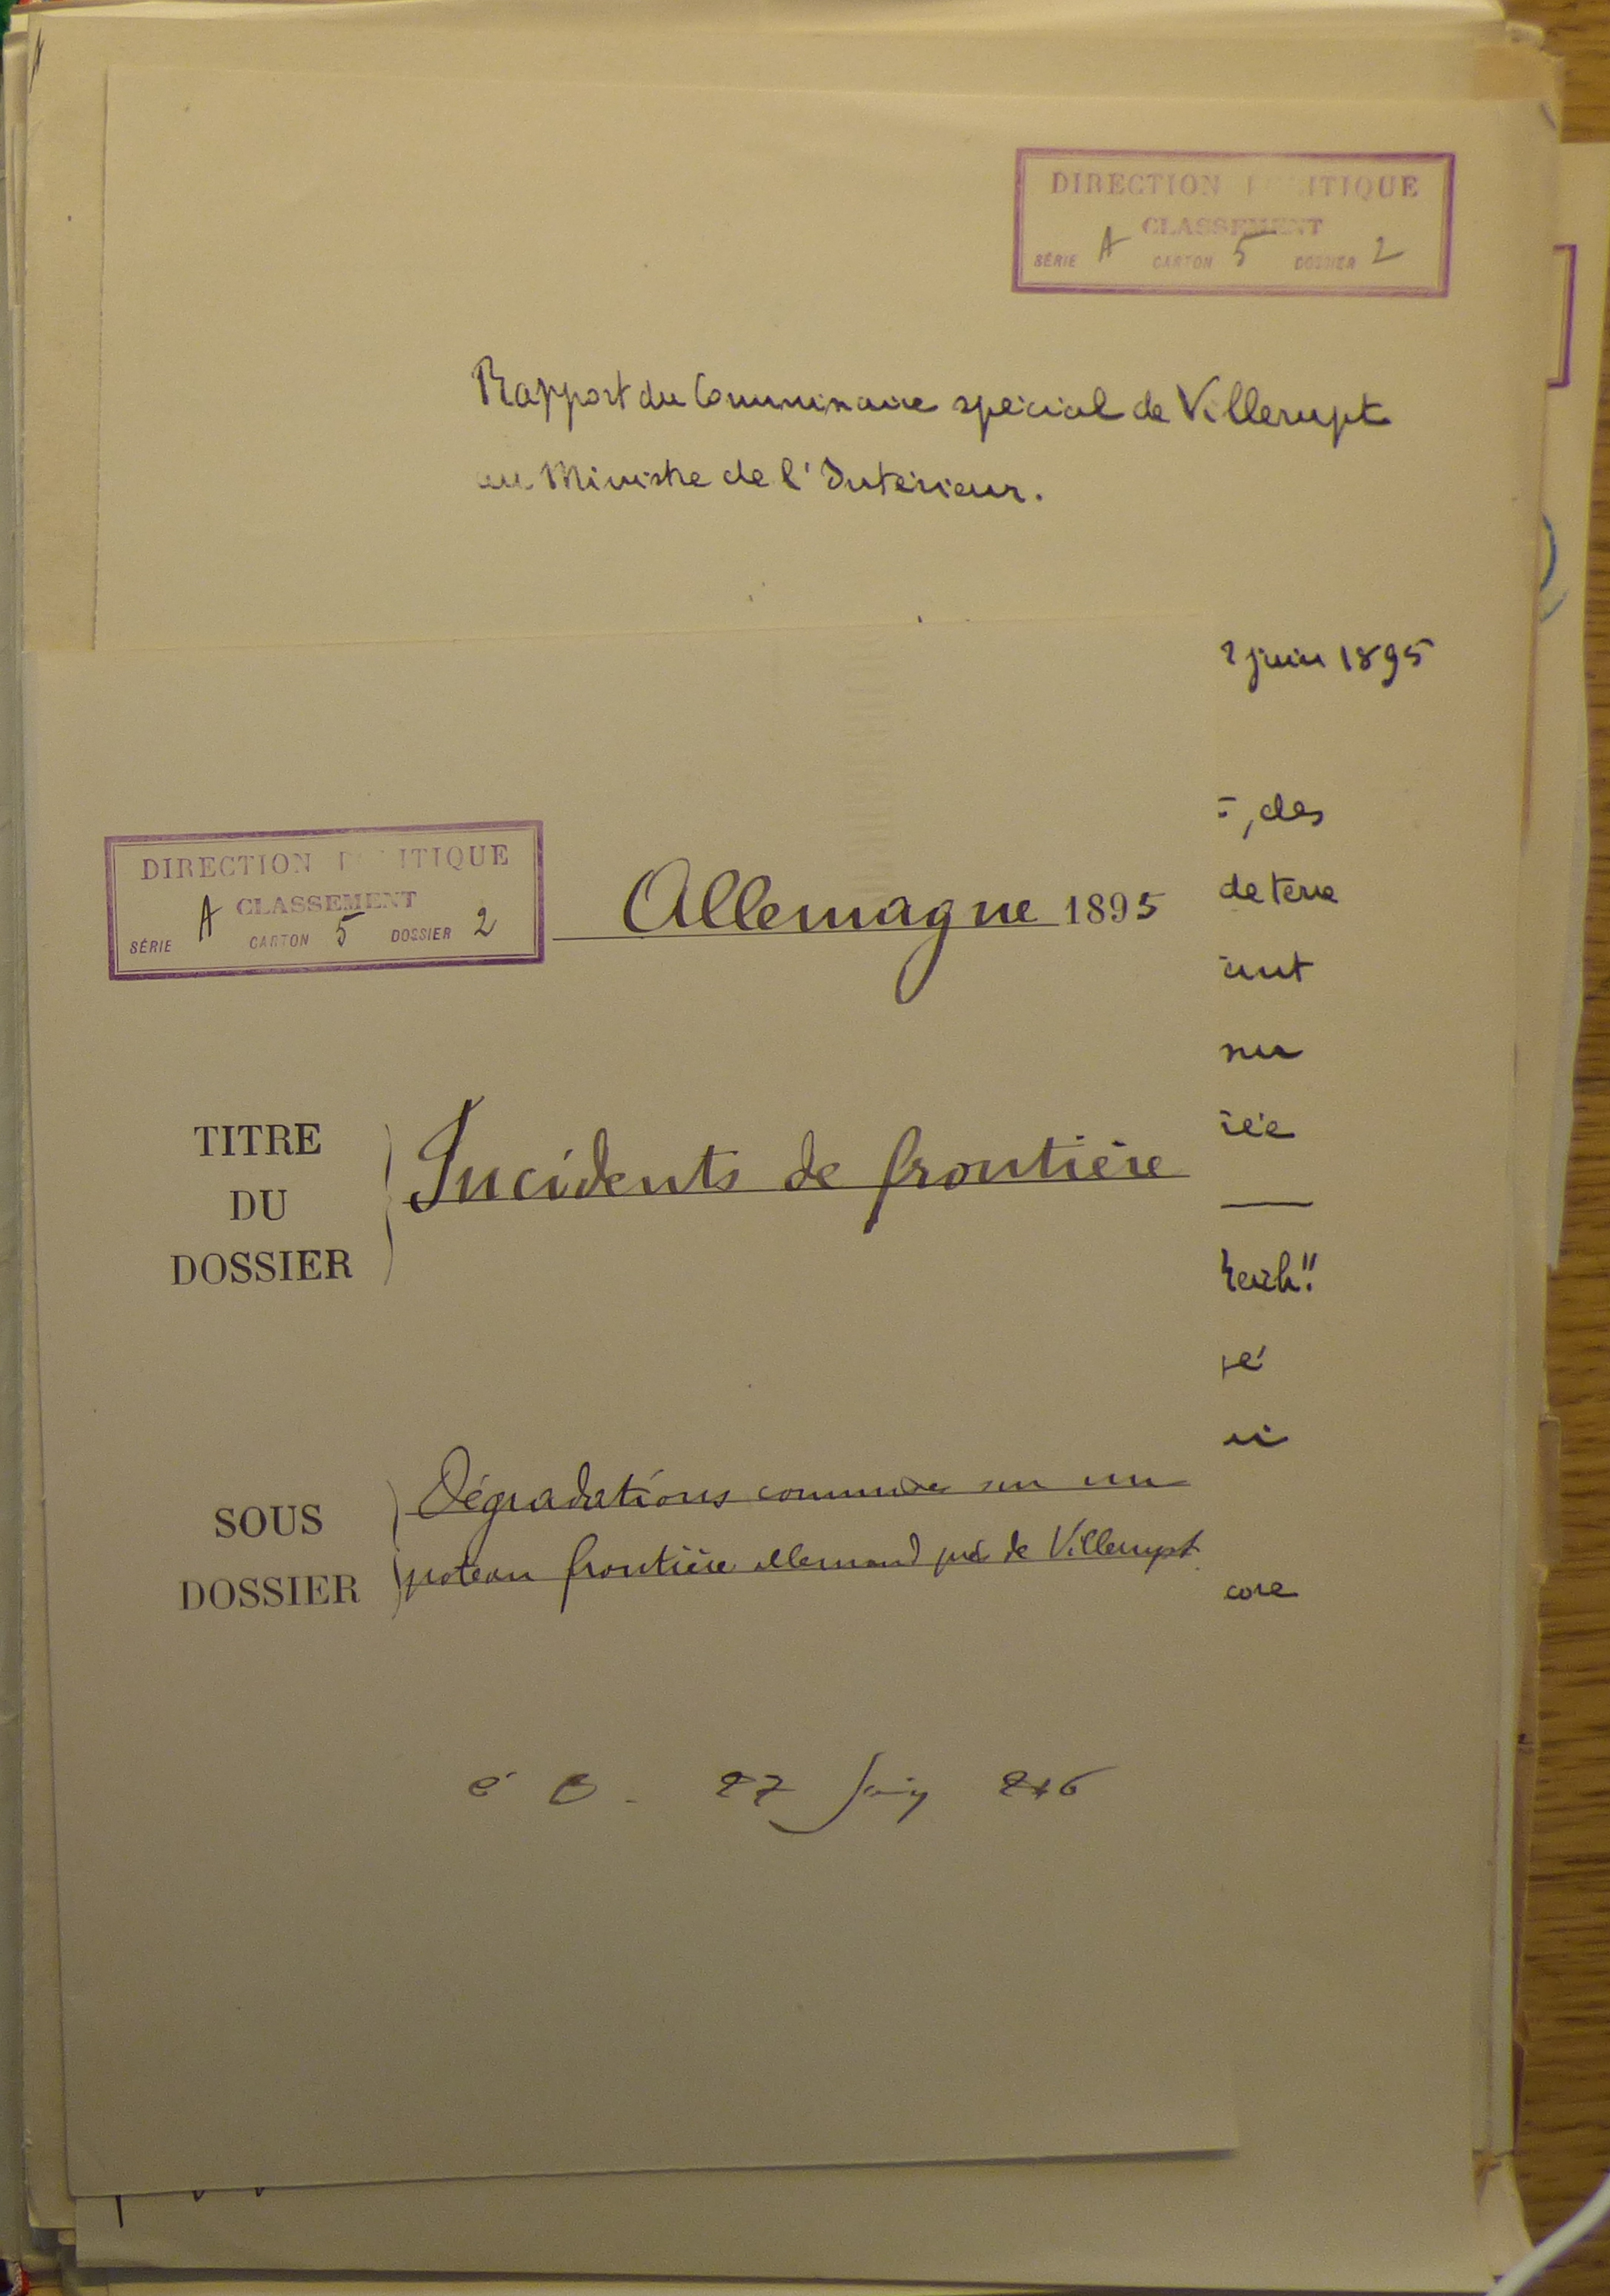 DIRECTION POLITIQUE
CLASSEMENT
SÉRIE A CARTON 5 DOSSIER 2
Rapport du Commissaire spécial de Villerupt
au Ministre de l'Intérieur.
juin 1895
, des
de terre
DIRECTION POLITIQUE
CLASSEMENT
SÉRIE A CARTON 5 DOSSIER 2
Allemagne 1895
TITRE
DU
DOSSIER
Incidents de frontière
SOUS
DOSSIER
Dégradations commises sur un
poteau frontière allemand près de Villerupt
core
27 Juin